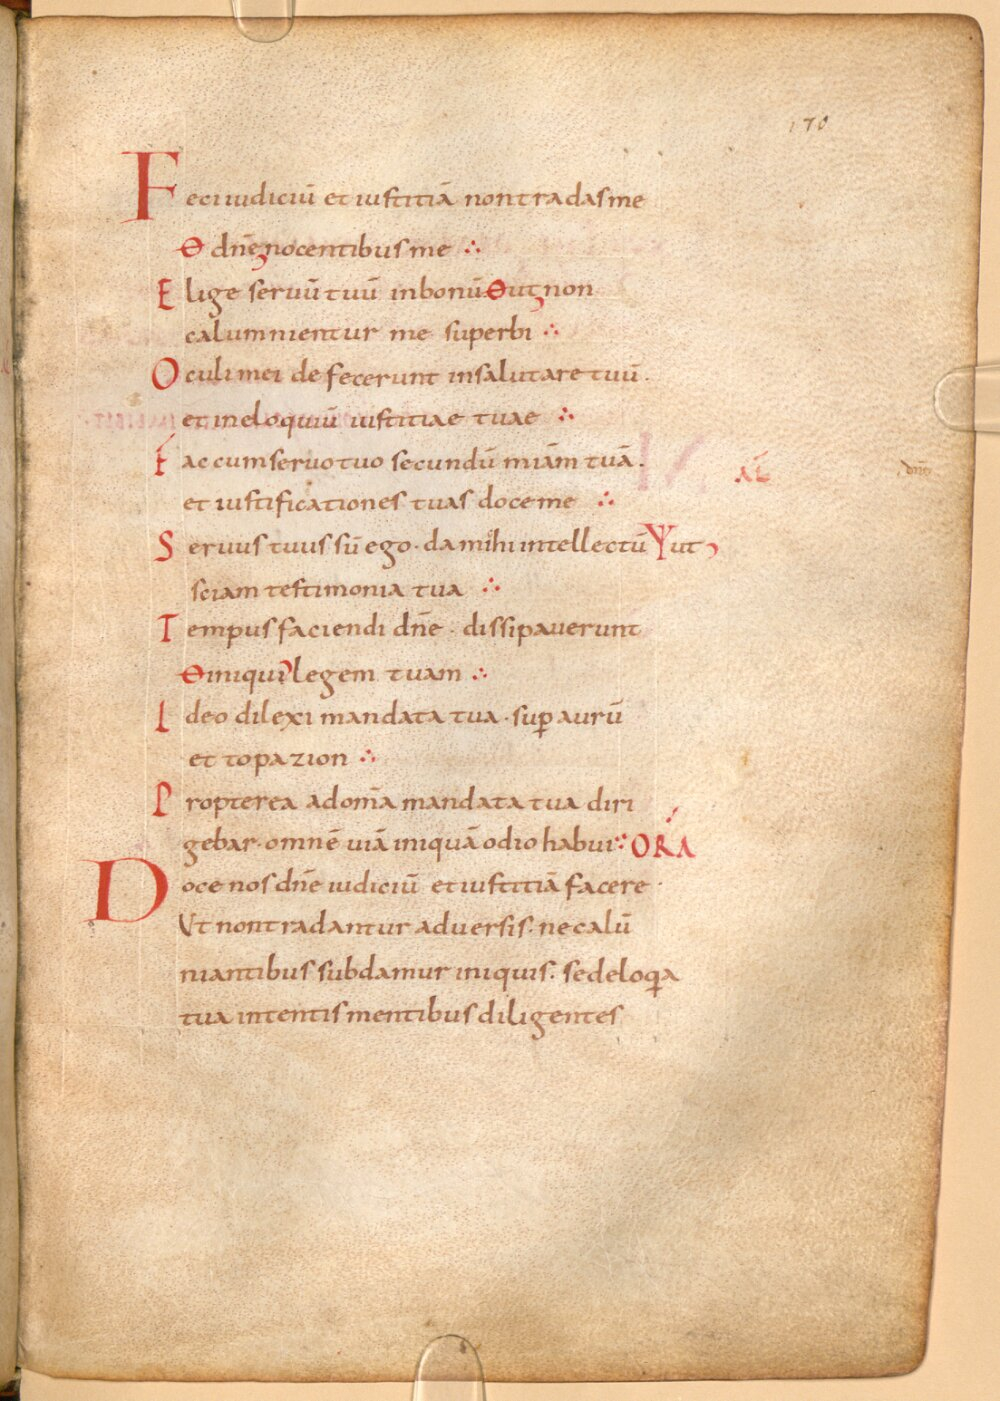 170
Feci iudiciū et iustitiā non tradas me
Θ dnē nocentibus me ∴
Elige seruū tuū in bonū Θ ut non
calumnientur me superbi ∴
Oculi mei defecerunt in salutare tuū.
et in eloquiū iustitiae tuae ∴
Fac cum seruo tuo secundū miām tuā. AĒ
et iustificationes tuas doce me ∴
Seruus tuus sū ego · da mihi intellectū Ψ ut
sciam testimonia tua ∴
Tempus faciendi dnē · dissipauerunt
Θ iniqui legem tuam ∴
Ideo dilexi mandata tua · sup aurū
et topazion ∴
Propterea ad omīa mandata tua diri
gebar · omnē uiā iniquā odio habui ∴ ORA
Doce nos dnē iudiciū et iustitiā facere ·
Ut non tradantur aduersis · ne calū
niantibus subdamur iniquis · sed eloqia
tua intentis mentibus diligentes